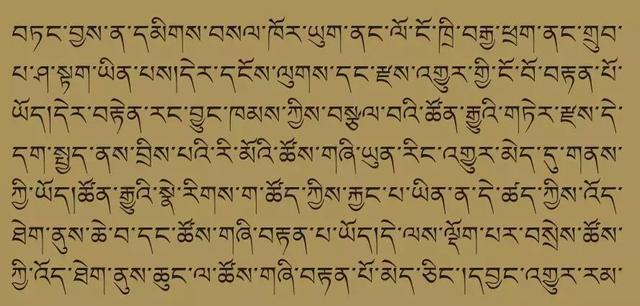 བཏང་བྱས་ན་དམིགས་བསལ་ཁོར་ཡུག་ནང་ལོ་ངོ་ཁྲི་བརྒྱ་ཕྲག་ནང་གྲུབ་
པ་ཤ་སྟག་ཡིན་པས།དེར་དངོས་ལུགས་དང་རྫས་འགྱུར་གྱི་ངོ་བོ་བརྟན་པོ་
ཡོད།དེར་བརྟེན་རང་བྱུང་ཁམས་ཀྱིས་བསྩལ་བའི་ཚོན་རྒྱུའི་གཏེར་རྫས་དེ་
དག་སྤྱད་ནས་བྲིས་པའི་རི་མོའི་ཚོས་གཞི་ཡུན་རིང་འགྱུར་མེད་དུ་གནས་
ཀྱི་ཡོད།ཚོན་རྒྱུའི་སྣེ་རིགས་ག་ཚོད་ཀྱིས་རྐྱང་པ་ཡིན་ན་དེ་ཚད་ཀྱིས་འོད་
ཐེག་ནུས་ཆེ་བ་དང་ཚོས་གཞི་བརྟན་པ་ཡོད།དེ་ལས་ལྡོག་པར་བསྲེས་ཚོས་
ཀྱི་འོད་ཐེག་ནུས་ཆུང་ལ་ཚོས་གཞི་བརྟན་པོ་མེད་ཅིང་།དབྱང་འགྱུར་རམ་